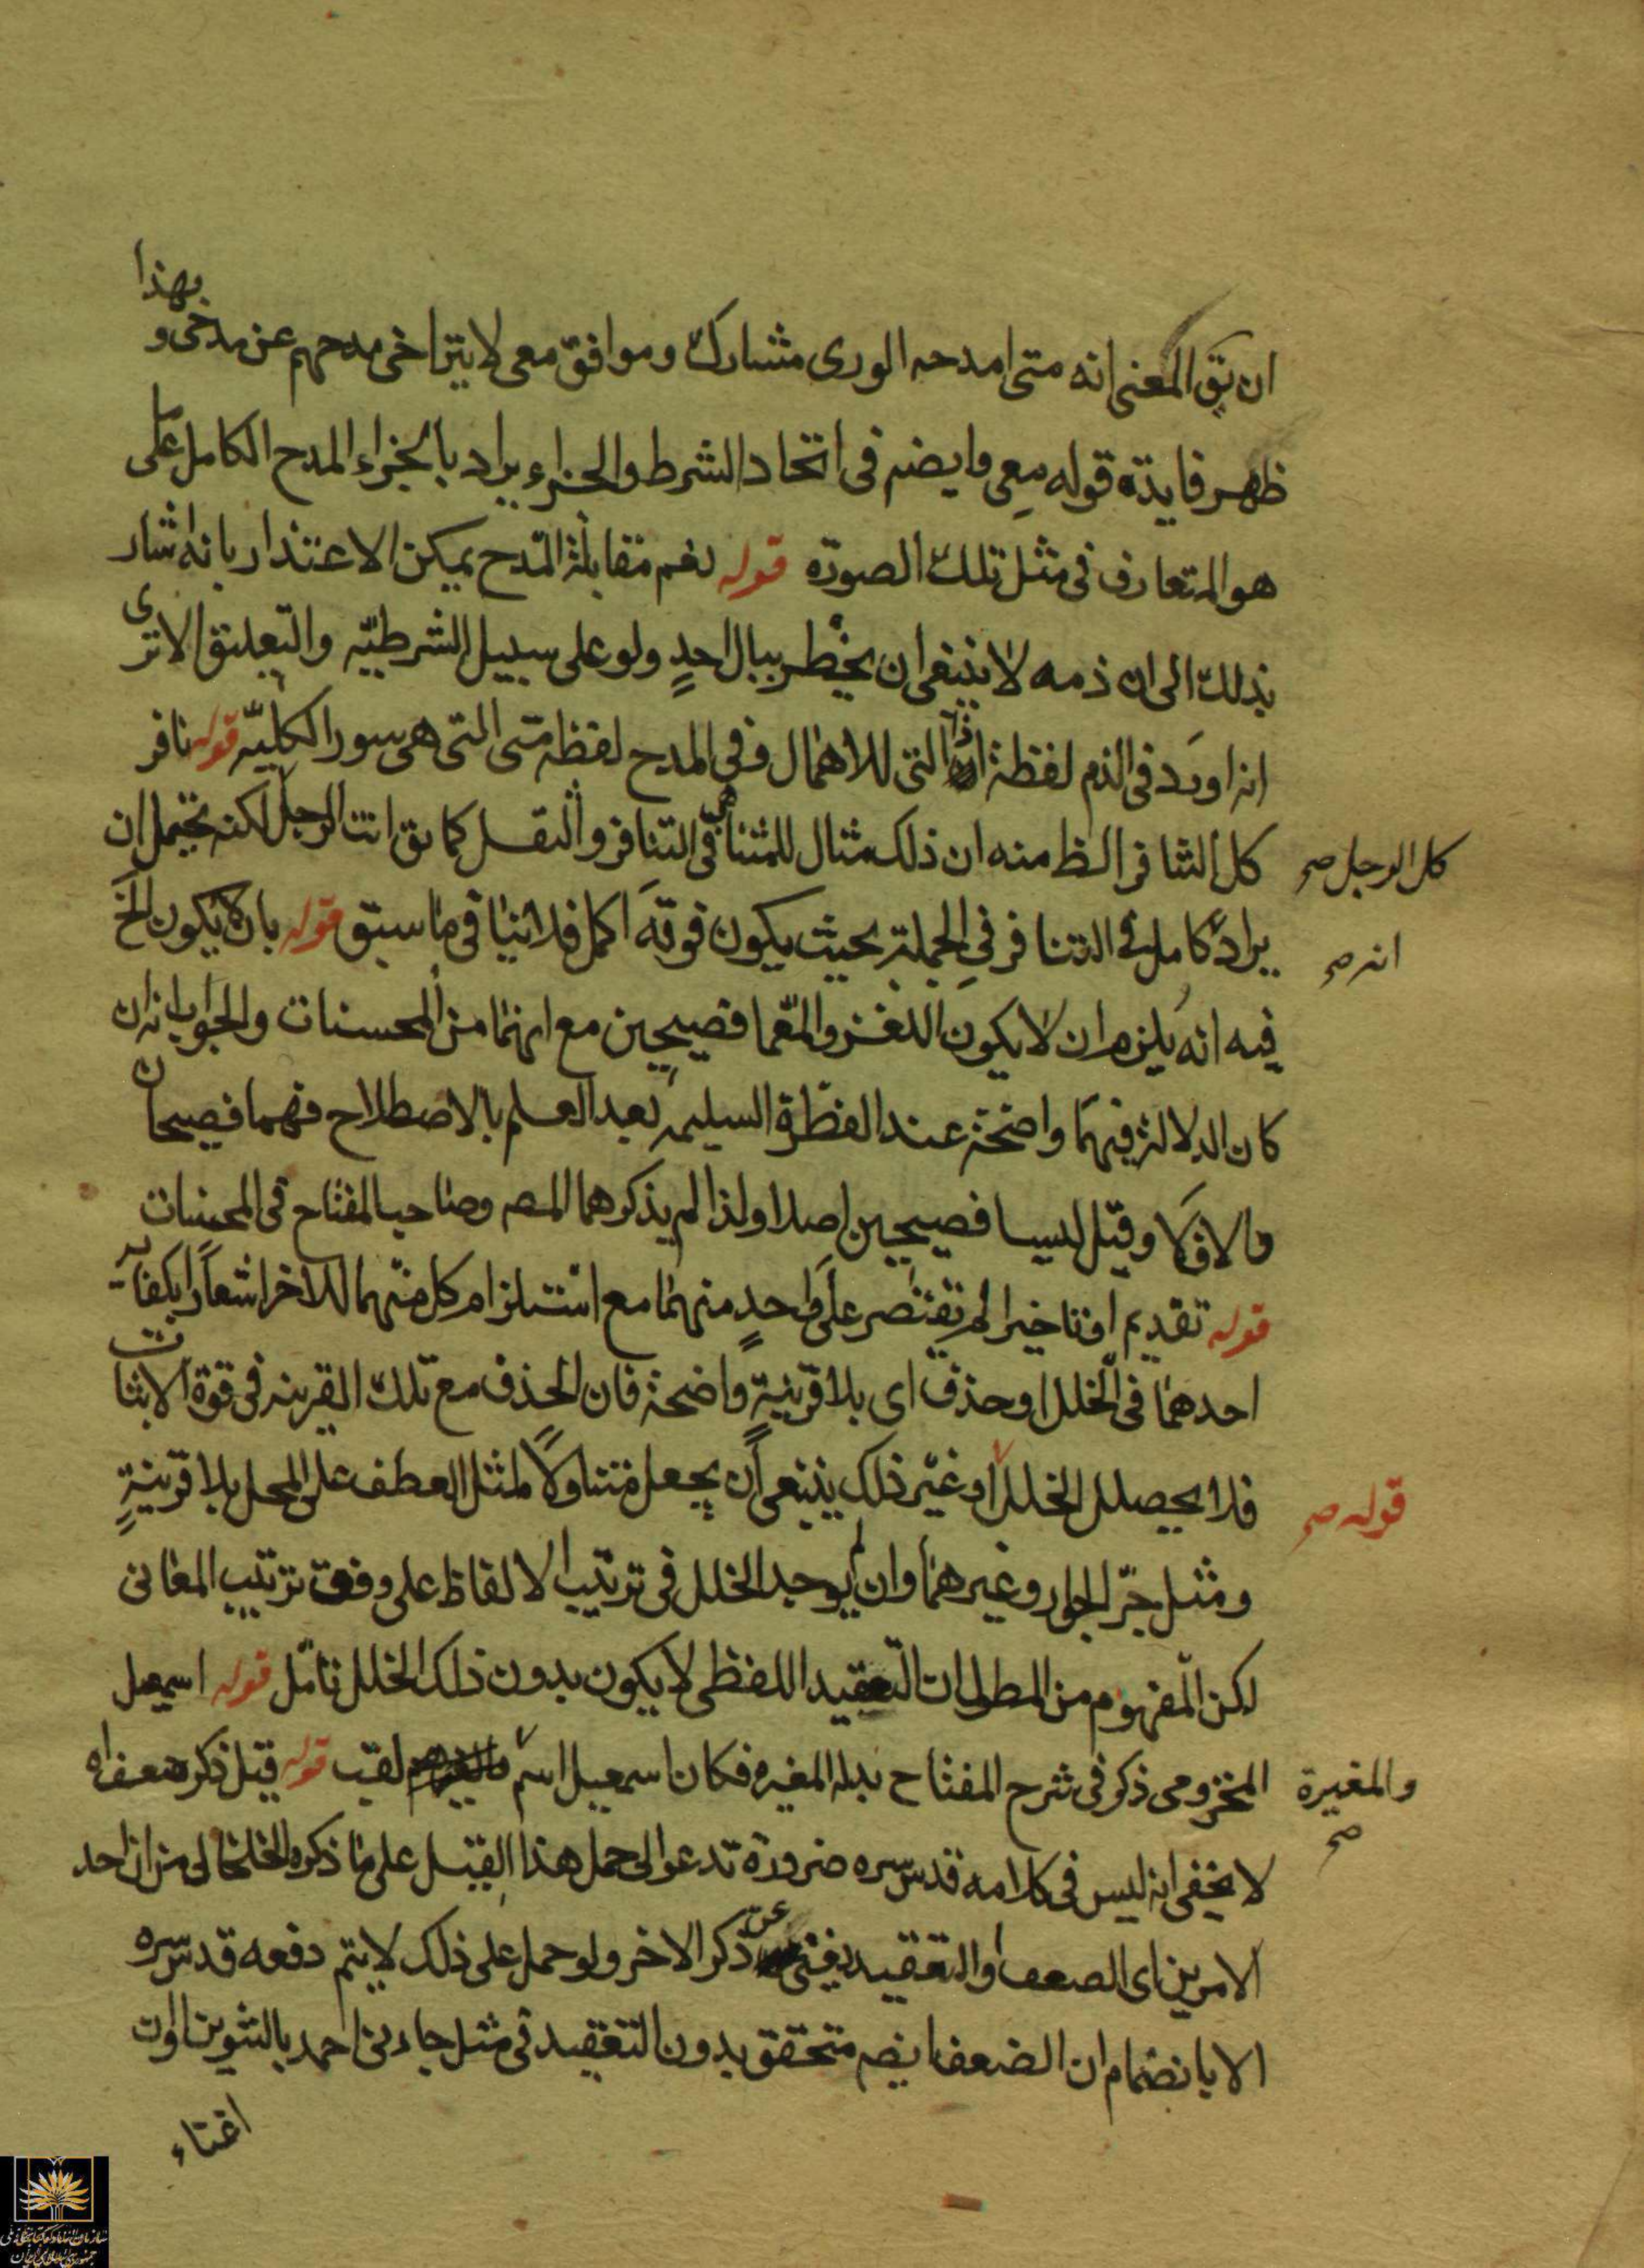 ان يق المعنى انه متى امدحه الورى مشارك وموافق معى لا يتراخى مدحهم عن مدحى و بهذا
ظهر فايدة قوله معى وايضم فى اتحاد الشرط والجزاء يراد بالجزاء المدح الكامل على ما
هو المتعارف فى مثل تلك الصورة قوله نعم مقابلة المدح يمكن الاعتذار بانه اشار
بذلك الى ان ذمه لا ينبغى ان يخطر ببال احدٍ ولو على سبيل الشرطية والتعليق الا ترى
انه اورد فى الذم لفظة اذا التى للاهمال وفى المدح لفظة متى التى هى سور الكلية قوله نافر
كل التنافر الظ منه ان ذلك مثال للمتناهى فى التنافر والثقل كما يق انت الرجل لكنه يحتمل ان
كل الرجل صح
يراد كامل فى التنافر فى الجملة بحيث يكون فوقه اكمل فلا ينافى ما سبق قوله بان لا يكون الخ
انه صح
فيه انه يلزم ان لا يكون اللغز والمعما فصيحين مع انهما من المحسنات والجواب انه ان
كان الدلالة فيهما واضحة عند الفطرة السليمة بعد العلم بالاصطلاح فهما فصيحان
والا فلا وقيل ليسا فصيحين اصلا ولذا لم يذكرهما المصم وصاحب المفتاح فى المحسنات
قوله تقديم او تاخير لم يقتصر على واحدٍ منهما مع استلزام كل منهما للاخر اشعاراً بكفاية
احدهما فى الخلل او حذف اى بلا قرينةٍ واضحة فان الحذف مع تلك القرينه فى قوة الاثبات
فلا يحصل الخلل او غير ذلك ينبغى ان يجعل متناولاً لمثل العطف على المحل بلا قرينةٍ
قوله صح
ومثل جرّ الجوار وغيرهما وان لم يوجد الخلل فى ترتيب الالفاظ على وفق ترتيب المعانى
لكن المفهوم من المط ان التعقيد اللفظى لا يكون بدون ذلك الخلل تامّل قوله اسمعيل
المخزومى ذكر فى شرح المفتاح بدله المغيره فكان اسمعيل اسم لقب قوله قيل ذكر ضعف اه
والمغيرة صح
لا يخفى انه ليس فى كلامه قدس سره ضرورة تدعو الى حمل هذا القيل على ما ذكره الخلخالى من ان احد
الامرين اى الضعف او التعقيد يغنى عن ذكر الاخر ولو حمل على ذلك لا يتم دفعه قدس سره
الا بانضمام ان الضعف ايضم متحقق بدون التعقيد فى مثل جاءنى احمد بالتنوين اوان
اغناء